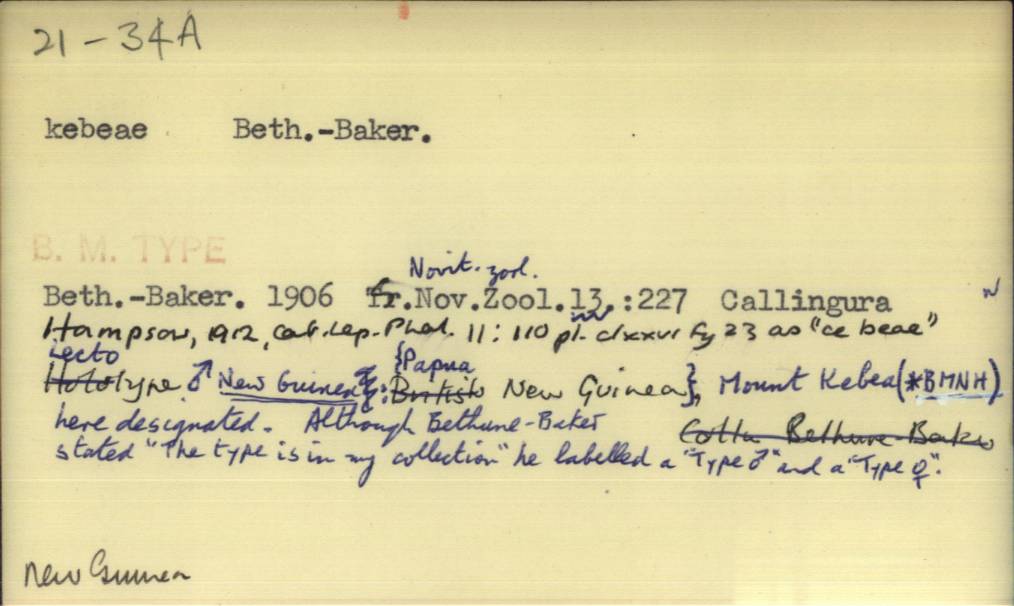 21-34A
kebeae Beth.-Baker.
B. M. TYPE
Novit. zool.
Beth.-Baker. 1906 fr.Nov.Zool.13.:227 Callingura
Hampson, 1912, Cat. Lep. Phal. 11: 110 pl. clxxvi fig 23 as "ce beae"
Lecto {Papua
Holotype ♂ New Guinea: British New Guinea}, Mount Kebea (*BMNH)
here designated. Although Bethune-Baker Colln Bethune Baker
stated "The type is in my collection" he labelled a "Type ♂" and a "Type ♀".
New Guinea